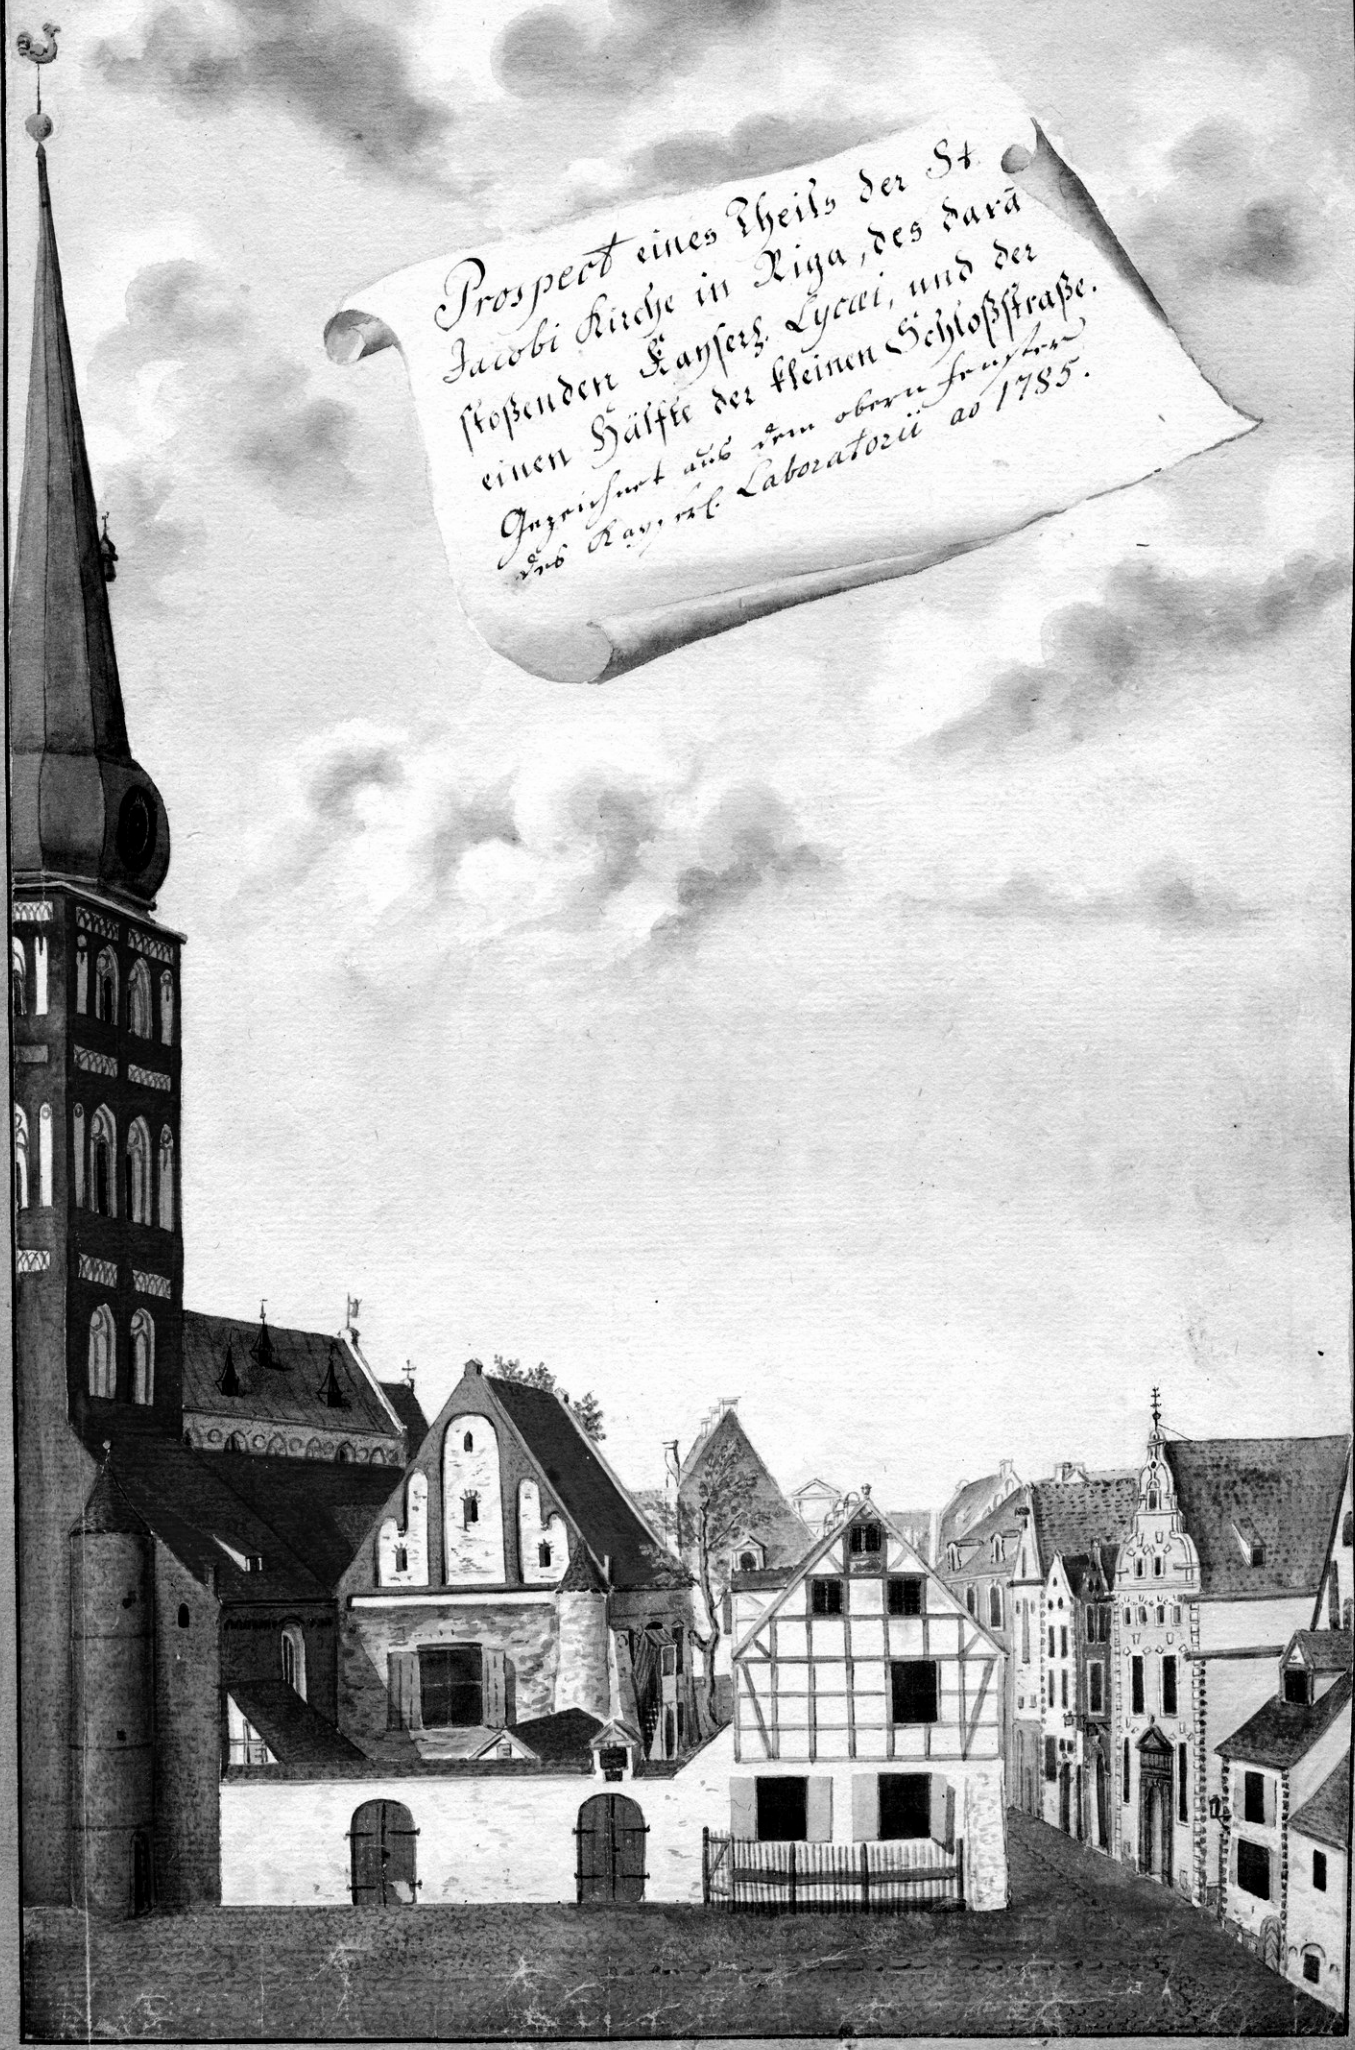 Prospect eines Theils der St.
Jacobi Kirche in Riga, des darā
stoßenden Kayserl. Lycæi, und der
einen Hälfte der kleinen Schloßstraße.
Gezeichnet aus dem obern Fenster
des Kayserl. Laboratorii ao 1785.